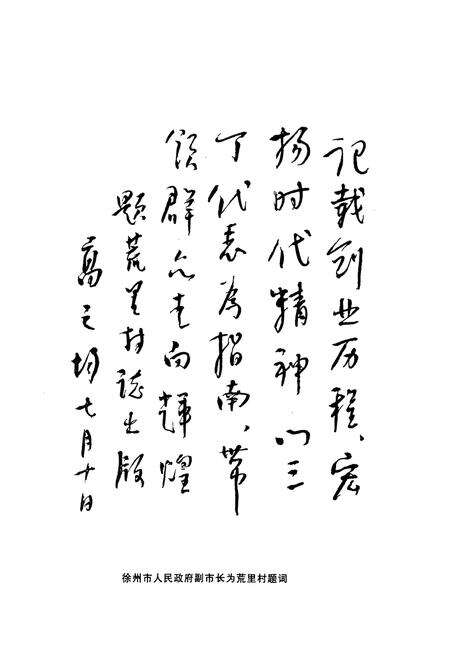 记载创业历程、宏
扬时代精神以三
个代表为指南、带
领群众走向辉煌
题荒里村志出版
高之均七月十日
徐州市人民政府副市长为荒里村题词